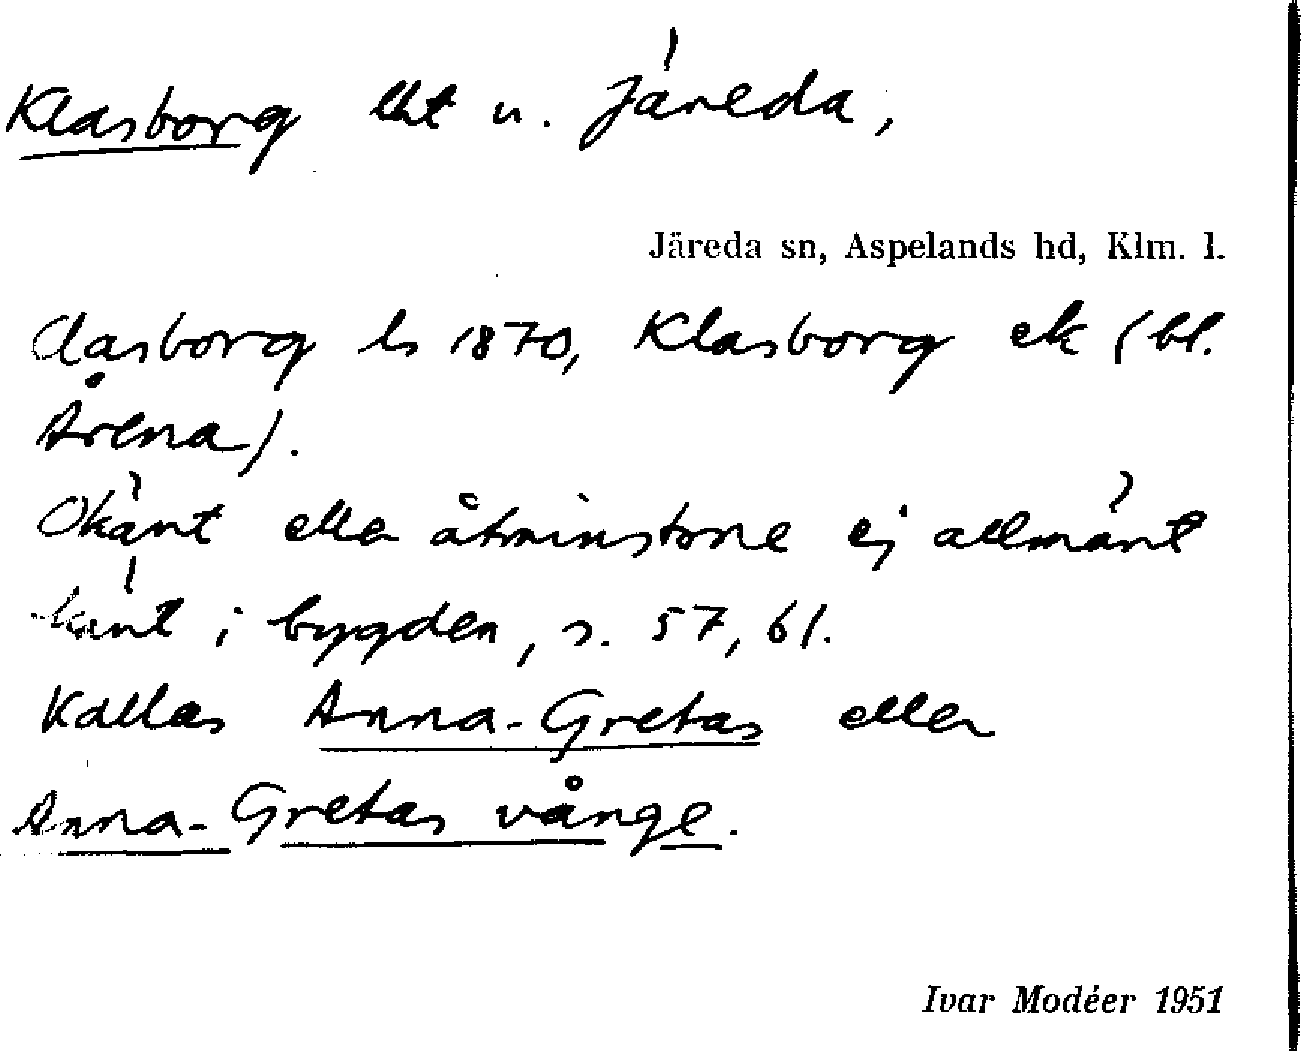 Klasborg lht u. Järeda,
Järeda sn, Aspelands hd, Klm. l.
Clasborg ls 1870, Klasborg ek (bl.
Årena).
Okänt eller åtminstone ej allmänt
känt i bygden, s. 57, 61.
Kallas Anna-Gretas eller
Anna-Gretas vånge.
Ivar Modéer 1951